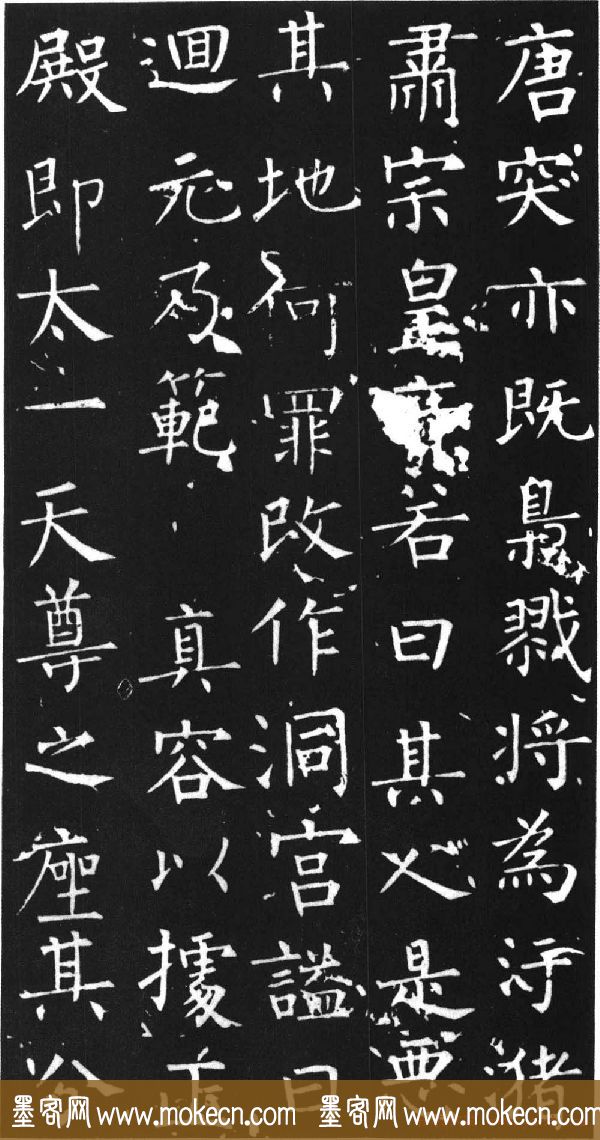 唐突亦既梟戮將為汙猪
肅宗皇帝若曰其人是惡
其地何罪改作洞宮謚曰
迴元乃範真容以據正
殿即太一天尊之座其分
墨客网 www.mokecn.com 墨客网 www.mokecn.com